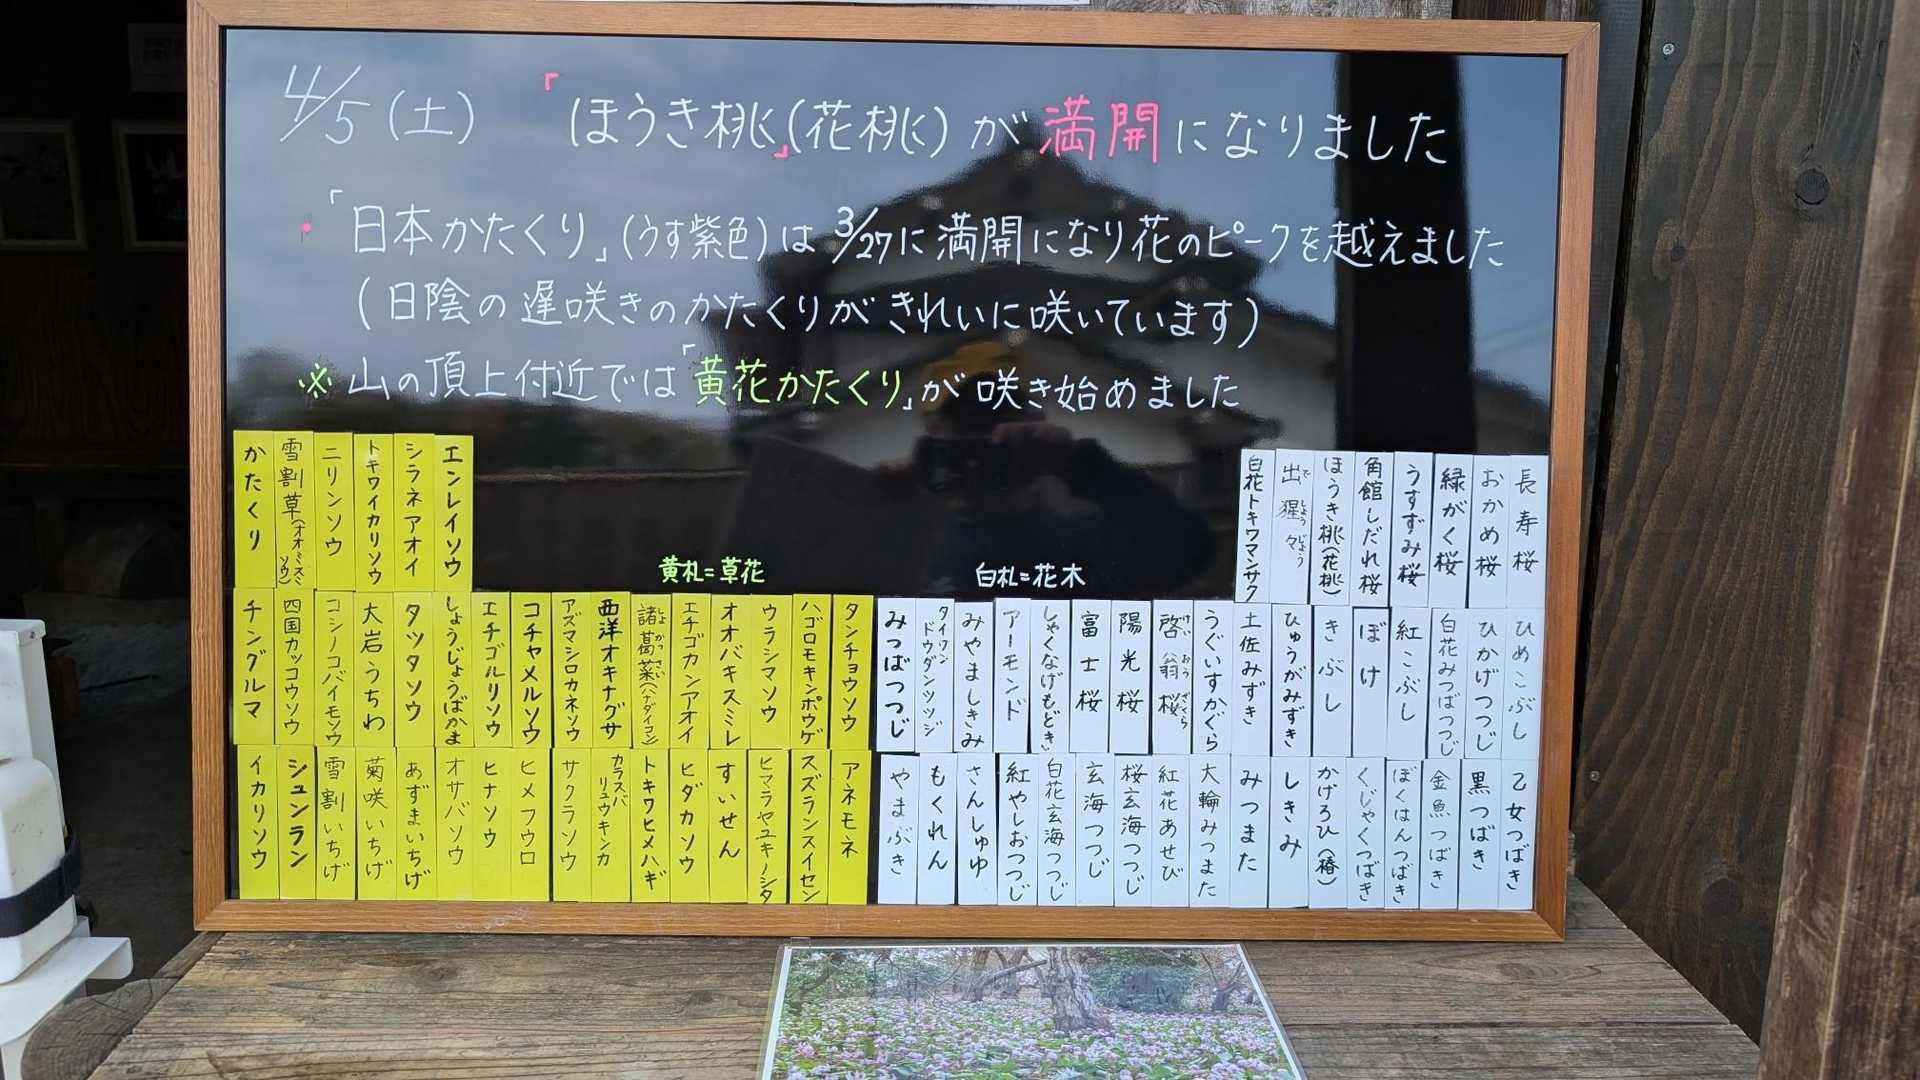 4/5(土) 「ほうき桃」(花桃)が満開になりました
・「日本かたくり」(うす紫色)は3/27に満開になり花のピークを越えました
(日陰の遅咲きのかたくりがきれいに咲いています)
※山の頂上付近では「黄花かたくり」が咲き始めました
黄札=草花
白札=花木
かたくり
雪割草(オオミスミソウ)
ニリンソウ
トキワイカリソウ
シラネアオイ
エンレイソウ
チングルマ
四国カッコウソウ
コシノコバイモンソウ
大岩うちわ
タツタソウ
しょうじょうばかま
エチゴルリソウ
コチャメルソウ
アズマシロカネソウ
西洋オキナグサ
諸葛菜(ハナダイコン)
しょかっさい
エチゴカンアオイ
オオバキスミレ
ウラシマソウ
ハゴロモキンポウゲ
タンチョウソウ
イカリソウ
シュンラン
雪割いちげ
菊咲いちげ
あずまいちげ
オサバソウ
ヒナソウ
ヒメフウロ
サクラソウ
カラスバリュウキンカ
トキワヒメハギ
ヒダカソウ
すいせん
ヒマラヤユキノシタ
スズランスイセン
アネモネ
白花トキワマンサク
出猩々
でしょうじょう
ほうき桃(花桃)
角館しだれ桜
うすずみ桜
緑がく桜
おかめ桜
長寿桜
みつばつつじ
タイワンドウダンツツジ
みやましきみ
アーモンド
しゃくなげもどき
富士桜
陽光桜
啓翁桜
けいおうざくら
うぐいすかぐら
土佐みずき
ひゅうがみずき
きぶし
ぼけ
紅こぶし
白花みつばつつじ
ひかげつつじ
ひめこぶし
やまぶき
もくれん
さんしゅゆ
紅やしおつつじ
白花玄海つつじ
玄海つつじ
桜玄海つつじ
紅花あせび
大輪みつまた
みつまた
しきみ
かげろひ(椿)
くじゃくつばき
ぼくはんつばき
金魚つばき
黒つばき
乙女つばき